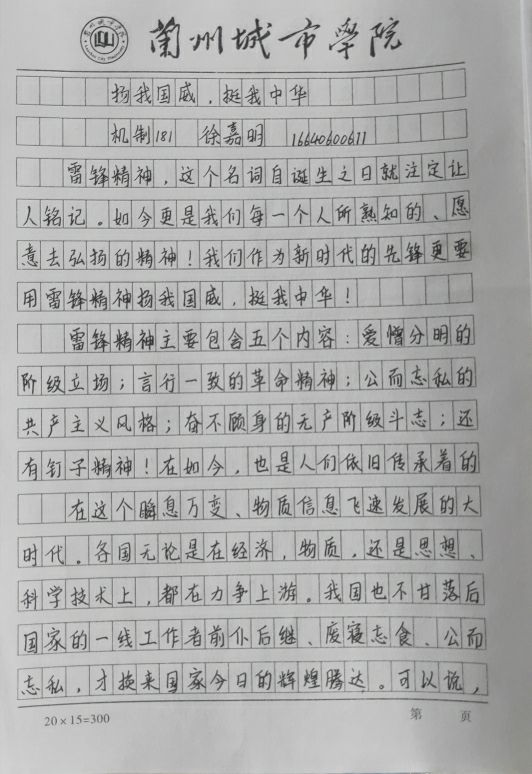 兰州城市学院
扬我国威，挺我中华
机制181 徐嘉明 16640600611
雷锋精神，这个名词自诞生之日就注定让
人铭记。如今更是我们每一个人所熟知的、愿
意去弘扬的精神！我们作为新时代的先锋更要
用雷锋精神扬我国威，挺我中华！
雷锋精神主要包含五个内容：爱憎分明的
阶级立场；言行一致的革命精神；公而忘私的
共产主义风格；奋不顾身的无产阶级斗志；还
有钉子精神！在如今，也是人们依旧传承着的
在这个瞬息万变、物质信息飞速发展的大
时代。各国无论是在经济，物质，还是思想、
科学技术上，都在力争上游。我国也不甘落后
国家的一线工作者前仆后继、废寝忘食、公而
忘私，才换来国家今日的辉煌腾达。可以说，
20×15=300 第 页